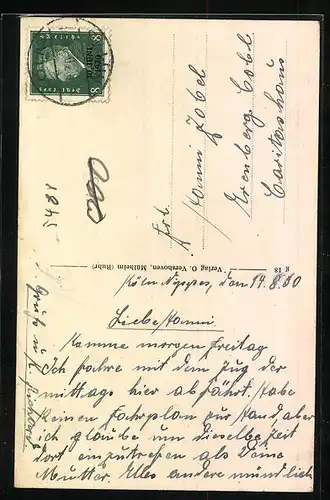 Frl.
Hanni Zobel
Ehrenberg Cobl
Caritashaus
1845
g 18 Verlag O. Vershoven, Mülheim (Ruhr)
Köln Nippes, den 14.8.30
Liebe Hanni.
Komme morgen Freitag
Ich fahre mit dem Zug der
mittags hier abfährt. Habe
keinen Fahrplan zur Hand, aber
ich glaube um dieselbe Zeit
dort einzutreffen als deine
Mutter. Alles andere mündlich
Gruß u. K.